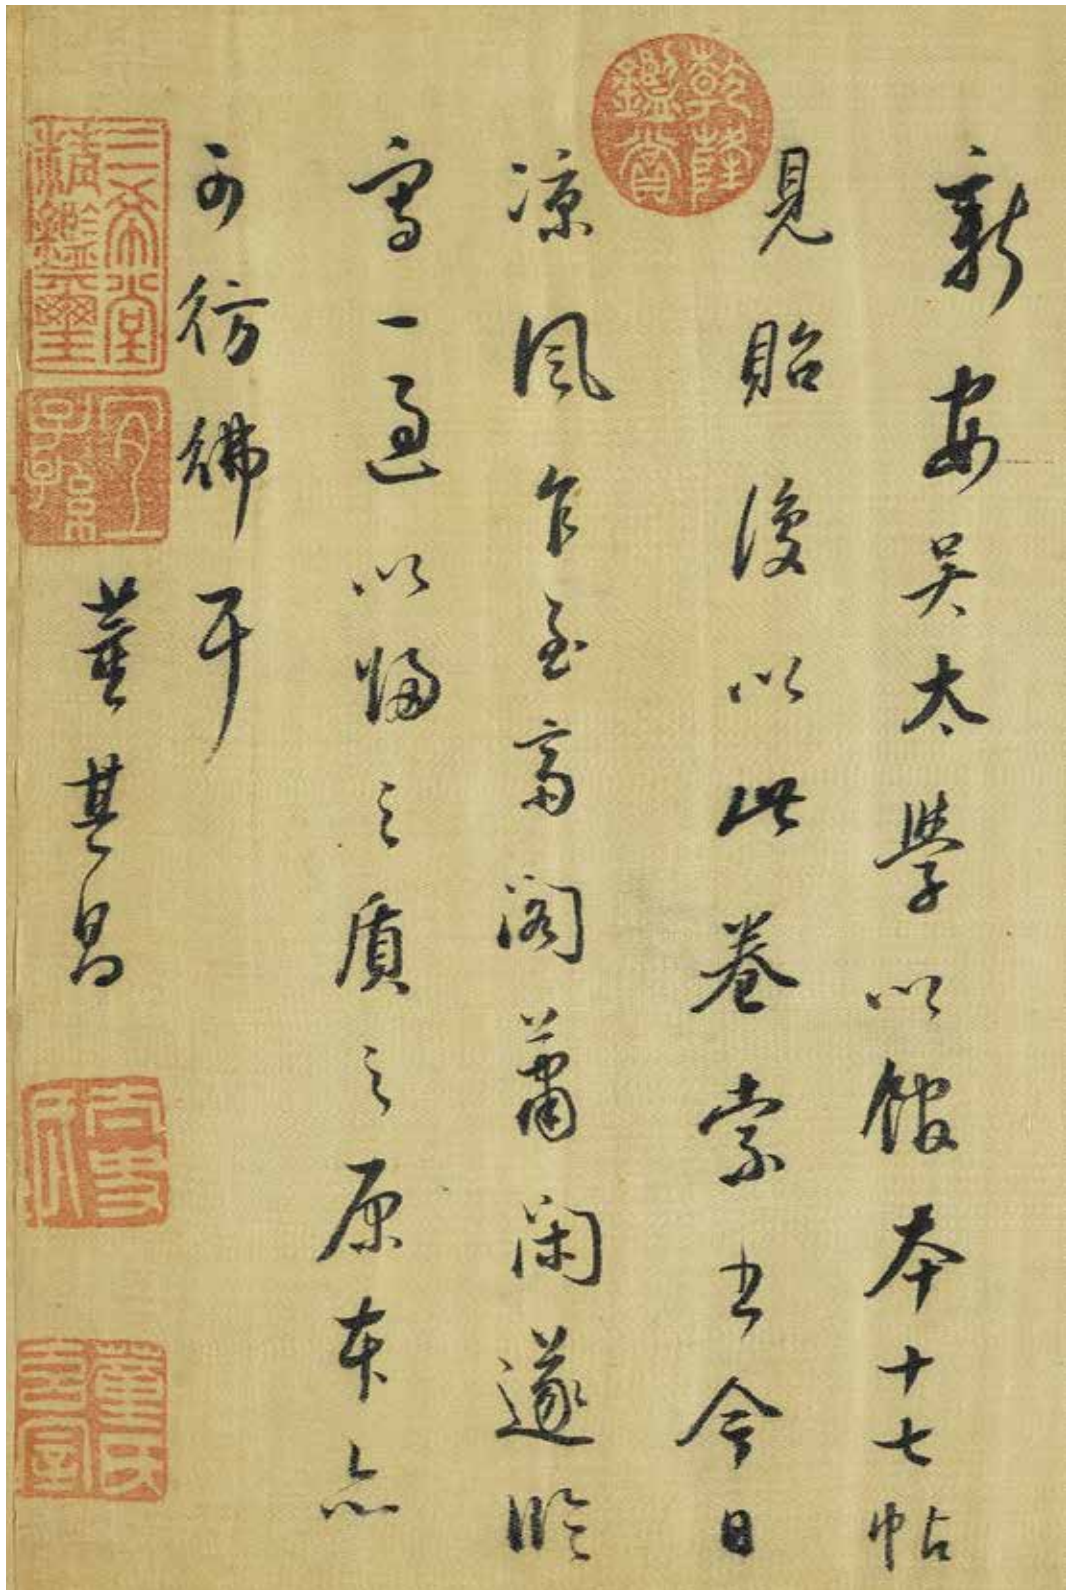 新安吳太學以館本十七帖
見貽後以此卷索書今日
涼風乍至齋閣蕭閑遂臨
寫一過以歸之質之原本亦
可彷彿耳
董其昌
乾隆鑑賞
三希堂精鑑璽
宜子孫